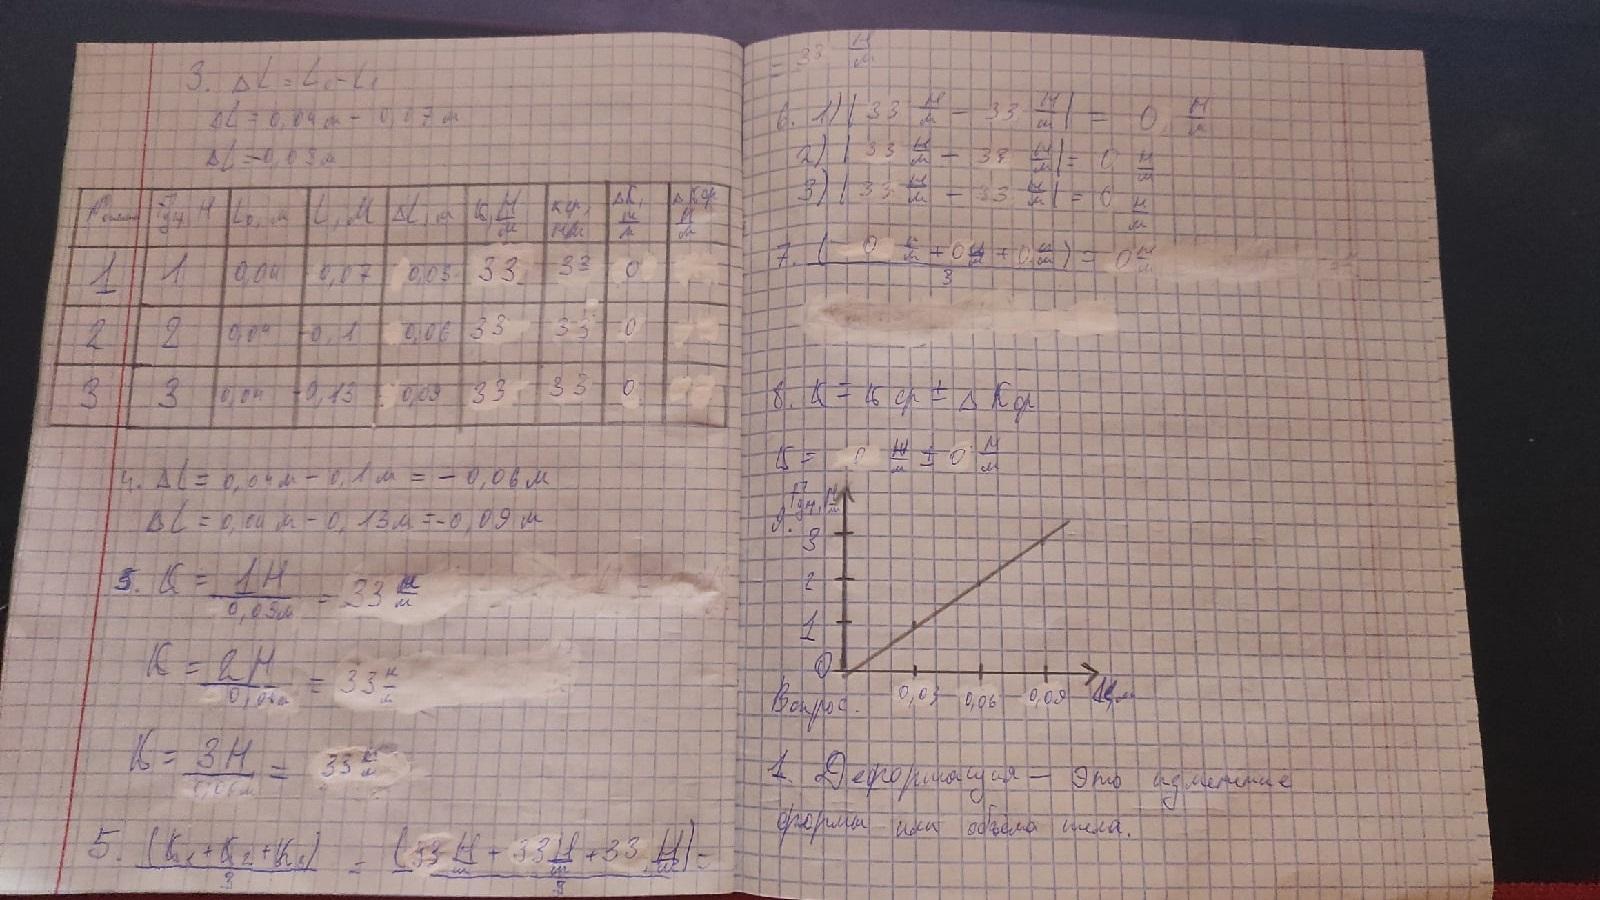 3. ΔL = L₀ - L₁
ΔL = 0,04 м - 0,07 м
ΔL = -0,03 м
Fуп, Н L₀, м L, М ΔL, м K, Н/м Kср, Н/м ΔK, Н/м ΔKср Н/м
1 1 0,04 0,07 0,03 33 33 0
2 2 0,04 0,1 0,06 33 33 0
3 3 0,04 0,13 0,09 33 33 0
4. ΔL = 0,04 м - 0,1 м = -0,06 м
ΔL = 0,04 м - 0,13 м = -0,09 м
5. K = 1Н / 0,03м = 33 Н/м
K = 2Н / 0,06м = 33 Н/м
K = 3Н / = 33 Н/м
5. (K₁ + K₂ + K₃) / 3 = (33 Н/м + 33 Н/м + 33 Н/м) / 3 =
= 33 Н/м
6. 1) | 33 Н/м - 33 Н/м | = 0 Н/м
2) | 33 Н/м - 33 Н/м | = 0 Н/м
3) | 33 Н/м - 33 Н/м | = 0 Н/м
7. (0 Н/м + 0 Н/м + 0 Н/м) / 3 = 0 Н/м
8. K = Kср ± ΔKср
K = 0 Н/м ± 0 Н/м
9. Fуп,
3
2
1
0
0,03 0,06 0,09 ΔL, м
Вопрос.
1. Деформация - это изменение
формы или объёма тела.